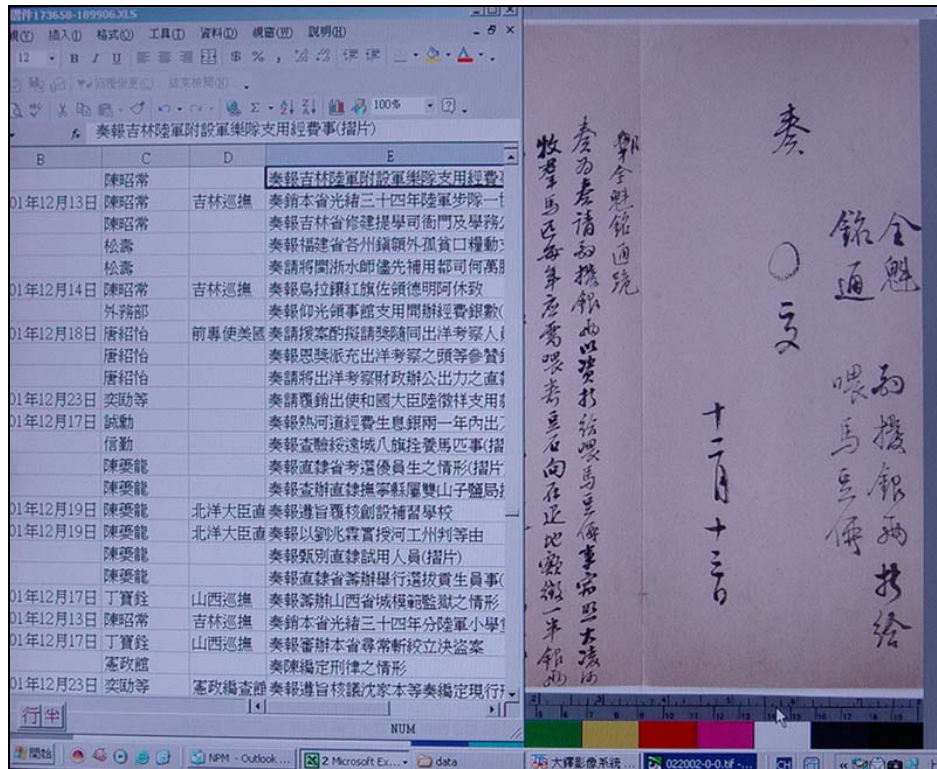 摺件173658-189906.XLS
視(V) 插入(I) 格式(O) 工具(T) 資料(D) 視窗(W) 說明(H)
12 B I U $ % ,
回覆變更(C)... 結束檢閱(N)...
100%
fx 奏報吉林陸軍附設軍樂隊支用經費事(摺片)
B C D E
陳昭常 奏報吉林陸軍附設軍樂隊支用經費
01年12月13日 陳昭常 吉林巡撫 奏銷本省光緒三十四年陸軍步隊一
陳昭常 奏報吉林省修建提學司衙門及學務
松壽 奏報福建省各州鎮額外孤貧口糧動
松壽 奏請將閩浙水師儘先補用都司何萬
01年12月14日 陳昭常 吉林巡撫 奏報烏拉鑲紅旗佐領德明阿休致
外務部 奏報仰光領事館支用開辦經費銀數(
01年12月18日 唐紹怡 前專使美國 奏請援案酌擬請獎隨同出洋考察人
唐紹怡 奏報恩獎派充出洋考察之頭等參贊
唐紹怡 奏請將出洋考察財政辦公出力之直
01年12月23日 奕劻等 奏請覆銷出使和國大臣陸徵祥支用
01年12月17日 誠勳 奏報熱河道經費生息銀兩一年內出
信勤 奏報查驗綏遠城八旗拴養馬匹事(摺
陳夔龍 奏報直隸省考選優員生之情形(摺片
陳夔龍 奏報查辦直隸撫寧縣屬雙山子鹽局
01年12月19日 陳夔龍 北洋大臣直 奏報遵旨覆核創設補習學校
01年12月19日 陳夔龍 北洋大臣直 奏報以劉兆霖實授河工州判等由
陳夔龍 奏報甄別直隸試用人員(摺片)
陳夔龍 奏報直隸省籌辦舉行選拔貢生員事(
01年12月17日 丁寶銓 山西巡撫 奏報籌辦山西省城模範監獄之情形
01年12月13日 陳昭常 吉林巡撫 奏銷本省光緒三十四年分陸軍小學
01年12月17日 丁寶銓 山西巡撫 奏報審辦本省尋常斬絞立決盜案
憲政館 奏陳編定刑律之情形
01年12月23日 奕劻等 憲政編查館 奏報遵旨核議沈家本等奏編定現行
行半
NUM
奏
全魁 動撥銀兩折給
銘通 喂馬豆價
交
十二月十三日
全魁銘通跪
奏為奏請動撥銀兩以資折給喂馬豆價事窃照大凌河
牧羣馬匹每年应需喂养豆石向在退地徵一半銀兩
開始 NPM - Outlook ... 2 Microsoft Ex... data 大鐸影像系統 ... 022002-0-0.tif -... CH